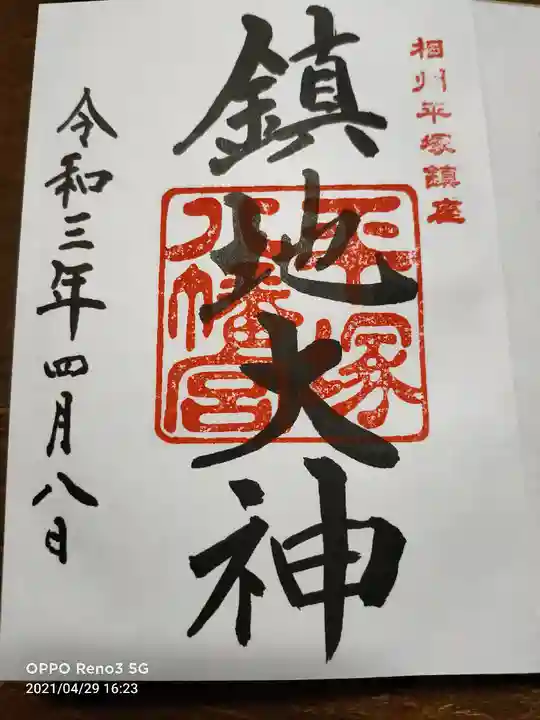 相州平塚鎮座
鎮地大神
平塚
八幡宮
令和三年四月八日
OPPO Reno3 5G
2021/04/29 16:23